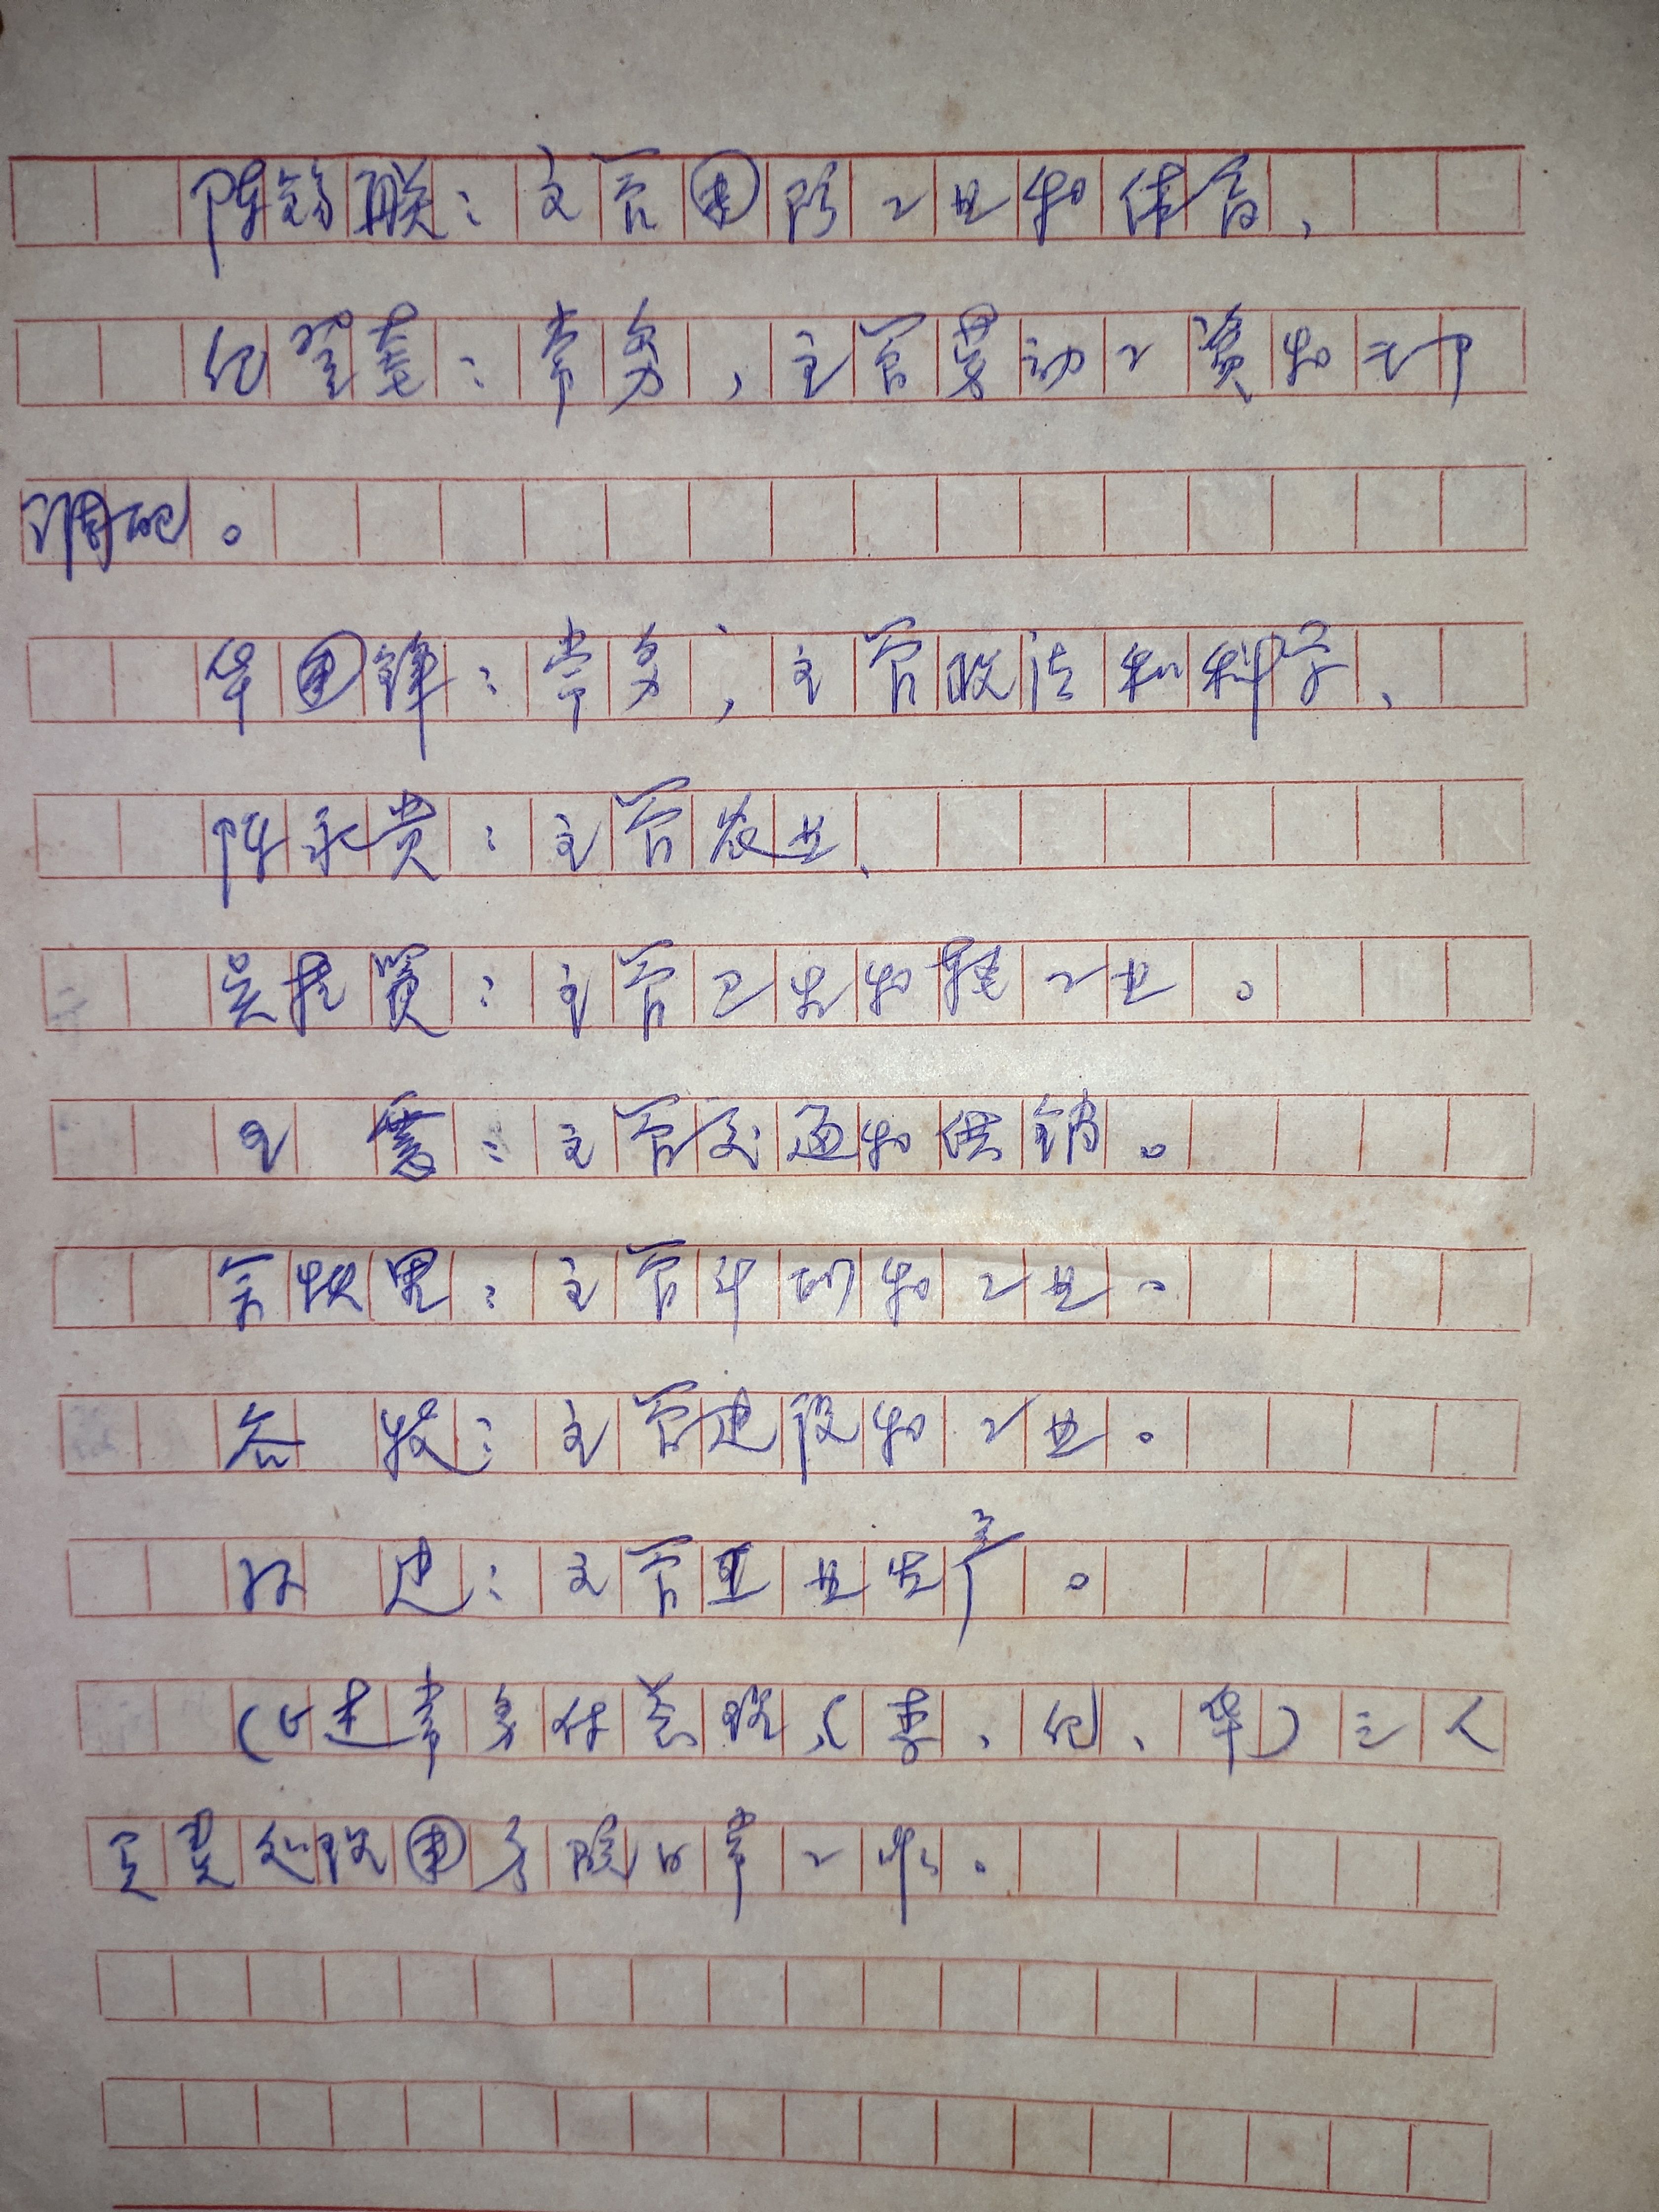 陈锡联：主管国防工业和体育、
纪登奎：常务，主管劳动工资和干部
调配。
华国锋：常务，主管政法和科学、
陈永贵：主管农业、
吴桂贤：主管卫生和轻工业。
王 震：主管交通和供销。
余秋里：主管计划和工业。
谷 牧：主管建设和工业。
孙 健：主管工业生产。
（上述常务付总理，（李、纪、华）三人
主要处理国务院日常工作。